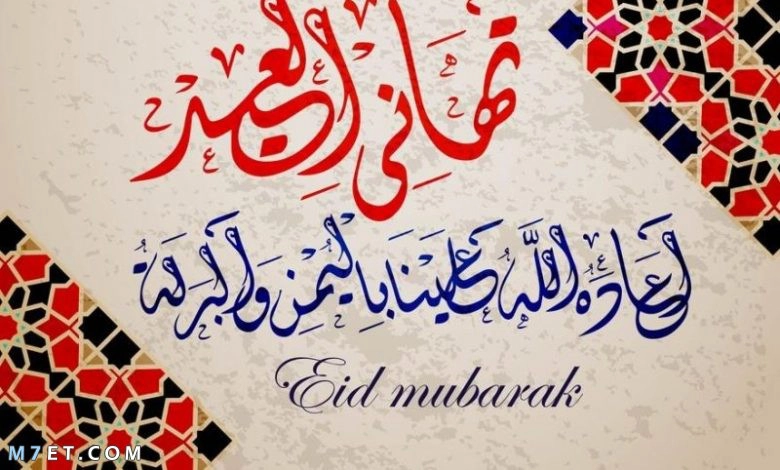 تهاني العيد
أعاده الله علينا باليمن والبركة
Eid mubarak
M7ET.COM